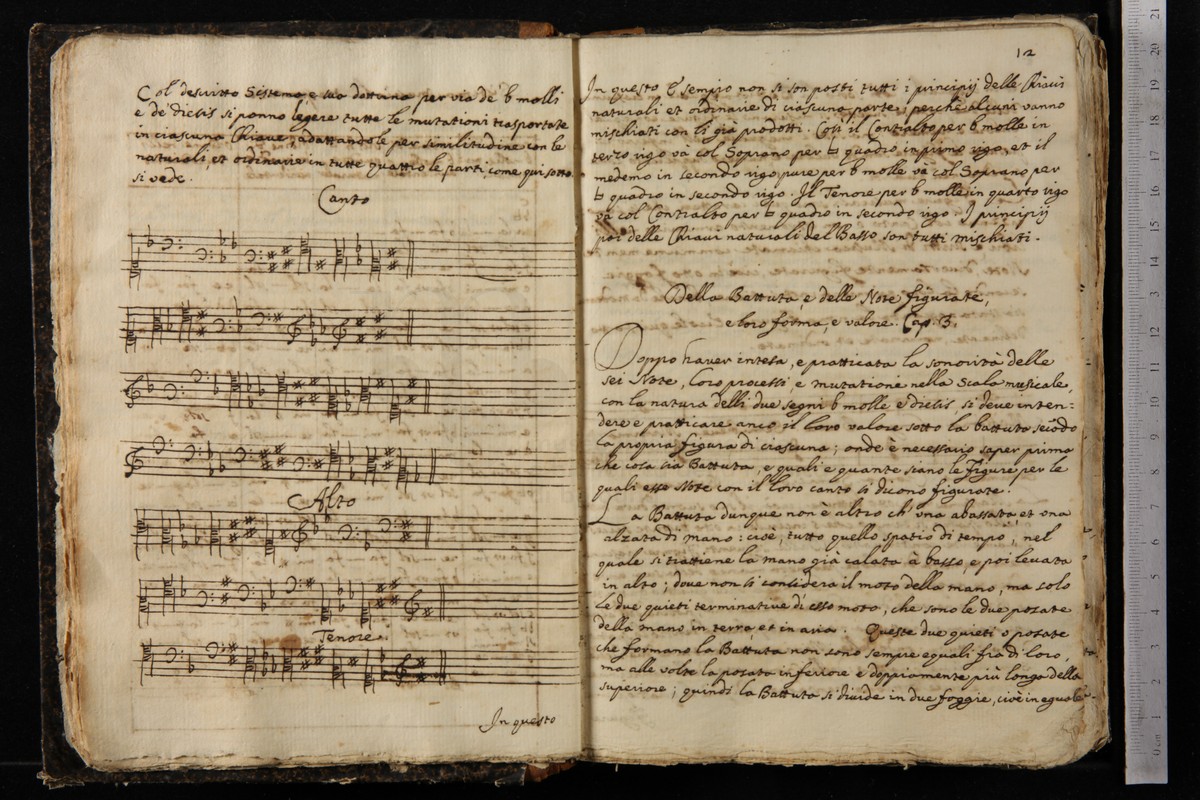 Col descritto Sistema, e sua dottrina per via de b molli
e de diesis si ponno legere tutte le mutationi trasportate
in ciascuna Chiave, adattandole per similitudine con le
naturali, et ordinarie in tutte quattro le parti, come qui sotto
si vede.
Canto
Alto
Tenore
In questo
12
In questo Esempio non si son posti tutti i principij delle Chiavi
naturali et ordinarie di ciascuna parte, perche alcuni vanno
mischiati con li già prodotti. Così il Contralto per b molle in
terzo rigo và col Soprano per ♮ quadro in primo rigo, et il
medemo in secondo rigo pure per b molle và col Soprano per
♮ quadro in secondo rigo. Il Tenore per b molle in quarto rigo
và col Contralto per ♮ quadro in secondo rigo. I principij
poi delle Chiavi naturali del Basso son tutti mischiati.
Della Battuta, e delle Note figurate,
e loro forma, e valore. Cap. 3.
Doppo haver intesa, e pratticata la sonorità delle
sei Note, loro processi, e mutatione nella Scala musicale,
con la natura delli due segni b molle e Diesis, si deve inten:
dere e pratticare anco il loro valore sotto la battuta secōdo
la propria figura di ciascuna; onde è necessario saper prima
che cosa sia Battuta, e quali e quante siano le Figure per le
quali esse Note con il loro canto si dicono figurate.
La Battuta dunque non è altro ch'una abassata, et una
alzata di mano: cioè, tutto quello spatio di tempo, nel
quale si trattiene la mano già calata à basso, e poi levata
in alto; dove non si considera il moto della mano, ma solo
le due quieti terminative di esso moto, che sono le due posate
della mano in terra, et in aria. Queste due quieti o posate
che formano la Battuta non sono sempre eguali frà di loro,
ma alle volte la posata inferiore è doppiamente più longa della
superiore; quindi la Battuta si divide in due foggie, cioè in eguale